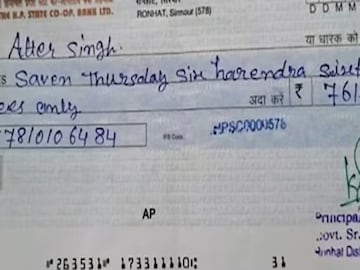 THE H.P. STATE CO-OP. BANK LTD.
RONHAT, Sirmour (578)
D D M M
Atter Singh.
या धारक को
Saven Thursday Six harendra Sixty
ees only
अदा करें ₹ 761
78101064 84
HPSC0000578
AP
Principa
Govt. Sr.
Ronhat Dis
"263531" 173311110: 31